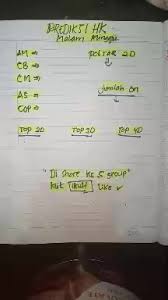 PREDIKSI HK
Malam Minggu
AM ⇒
CB ⇒
CM ⇒
AS ⇒
COP ⇒
2D
↓
Jumlah On
↓
TOP 2D TOP 3D TOP 4D
"Di share ke 5 group"
Like ✓